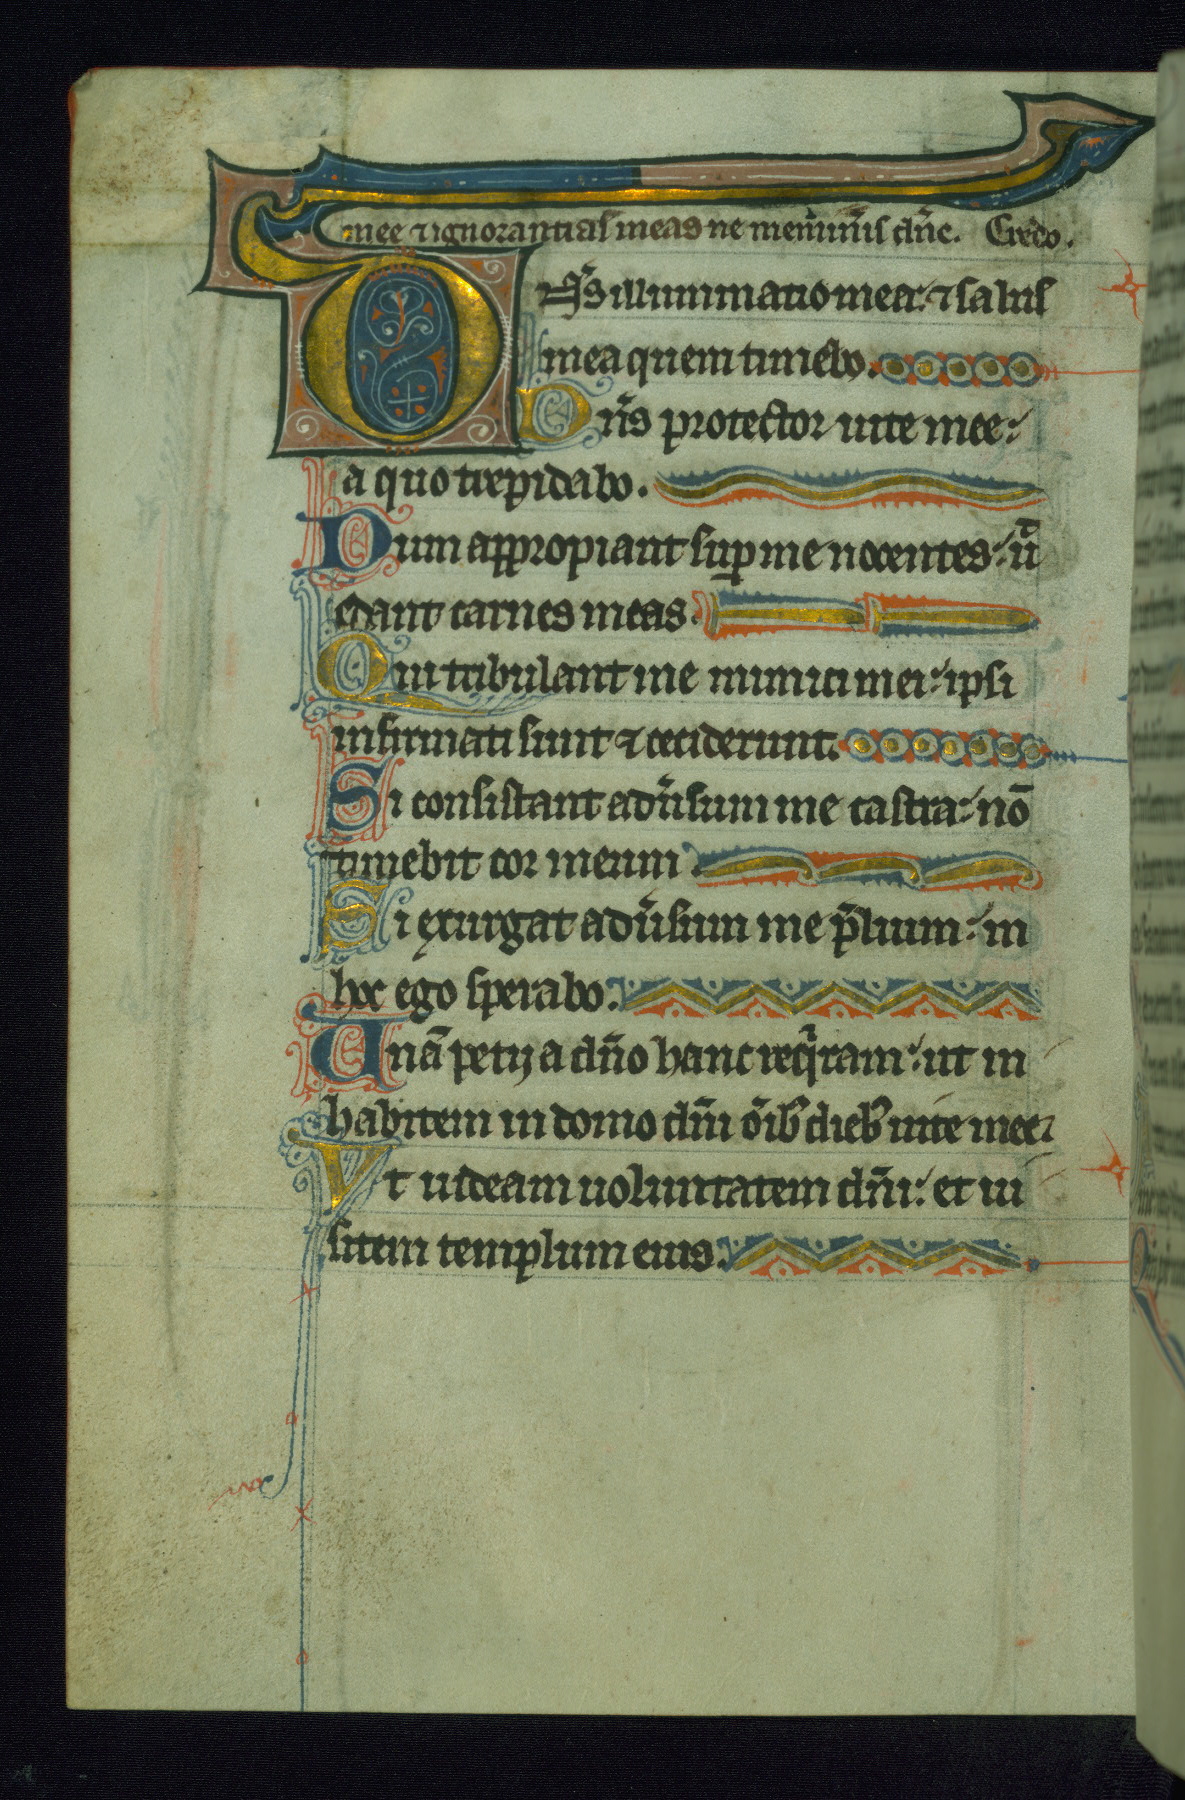 mee ⁊ ignorantias meas ne memĩnis dñe. Credo.
Dñs illuminatio mea: ⁊ salus
mea quem timebo.
Dñs protector uite mee:
a quo trepidabo.
Dum appropiant sup me nocentes: ut
edant carnes meas.
Qui tribulant me inimici mei: ipsi
infirmati sunt ⁊ ceciderunt.
Si consistant adũsum me castra: nõ
timebit cor meum.
Si exurgat adũsum me p̃lium: in
hoc ego sperabo.
Unã petij a dño hanc req̃ram: ut in
habitem in domo dñi õib dieb uite mee.
Ut uideam uoluntatem dñi: et ui
sitem templum eius.